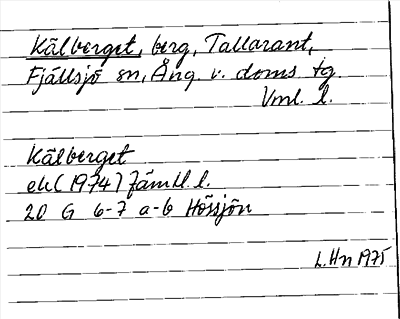 Kälberget, berg, Tallarant,
Fjällsjö sn, Ång. v. doms tg.
Vml. l.
Kälberget
ek (1974) Jämtl. l.
20 G 6-7 a-b Hössjön
L. Hn 1975